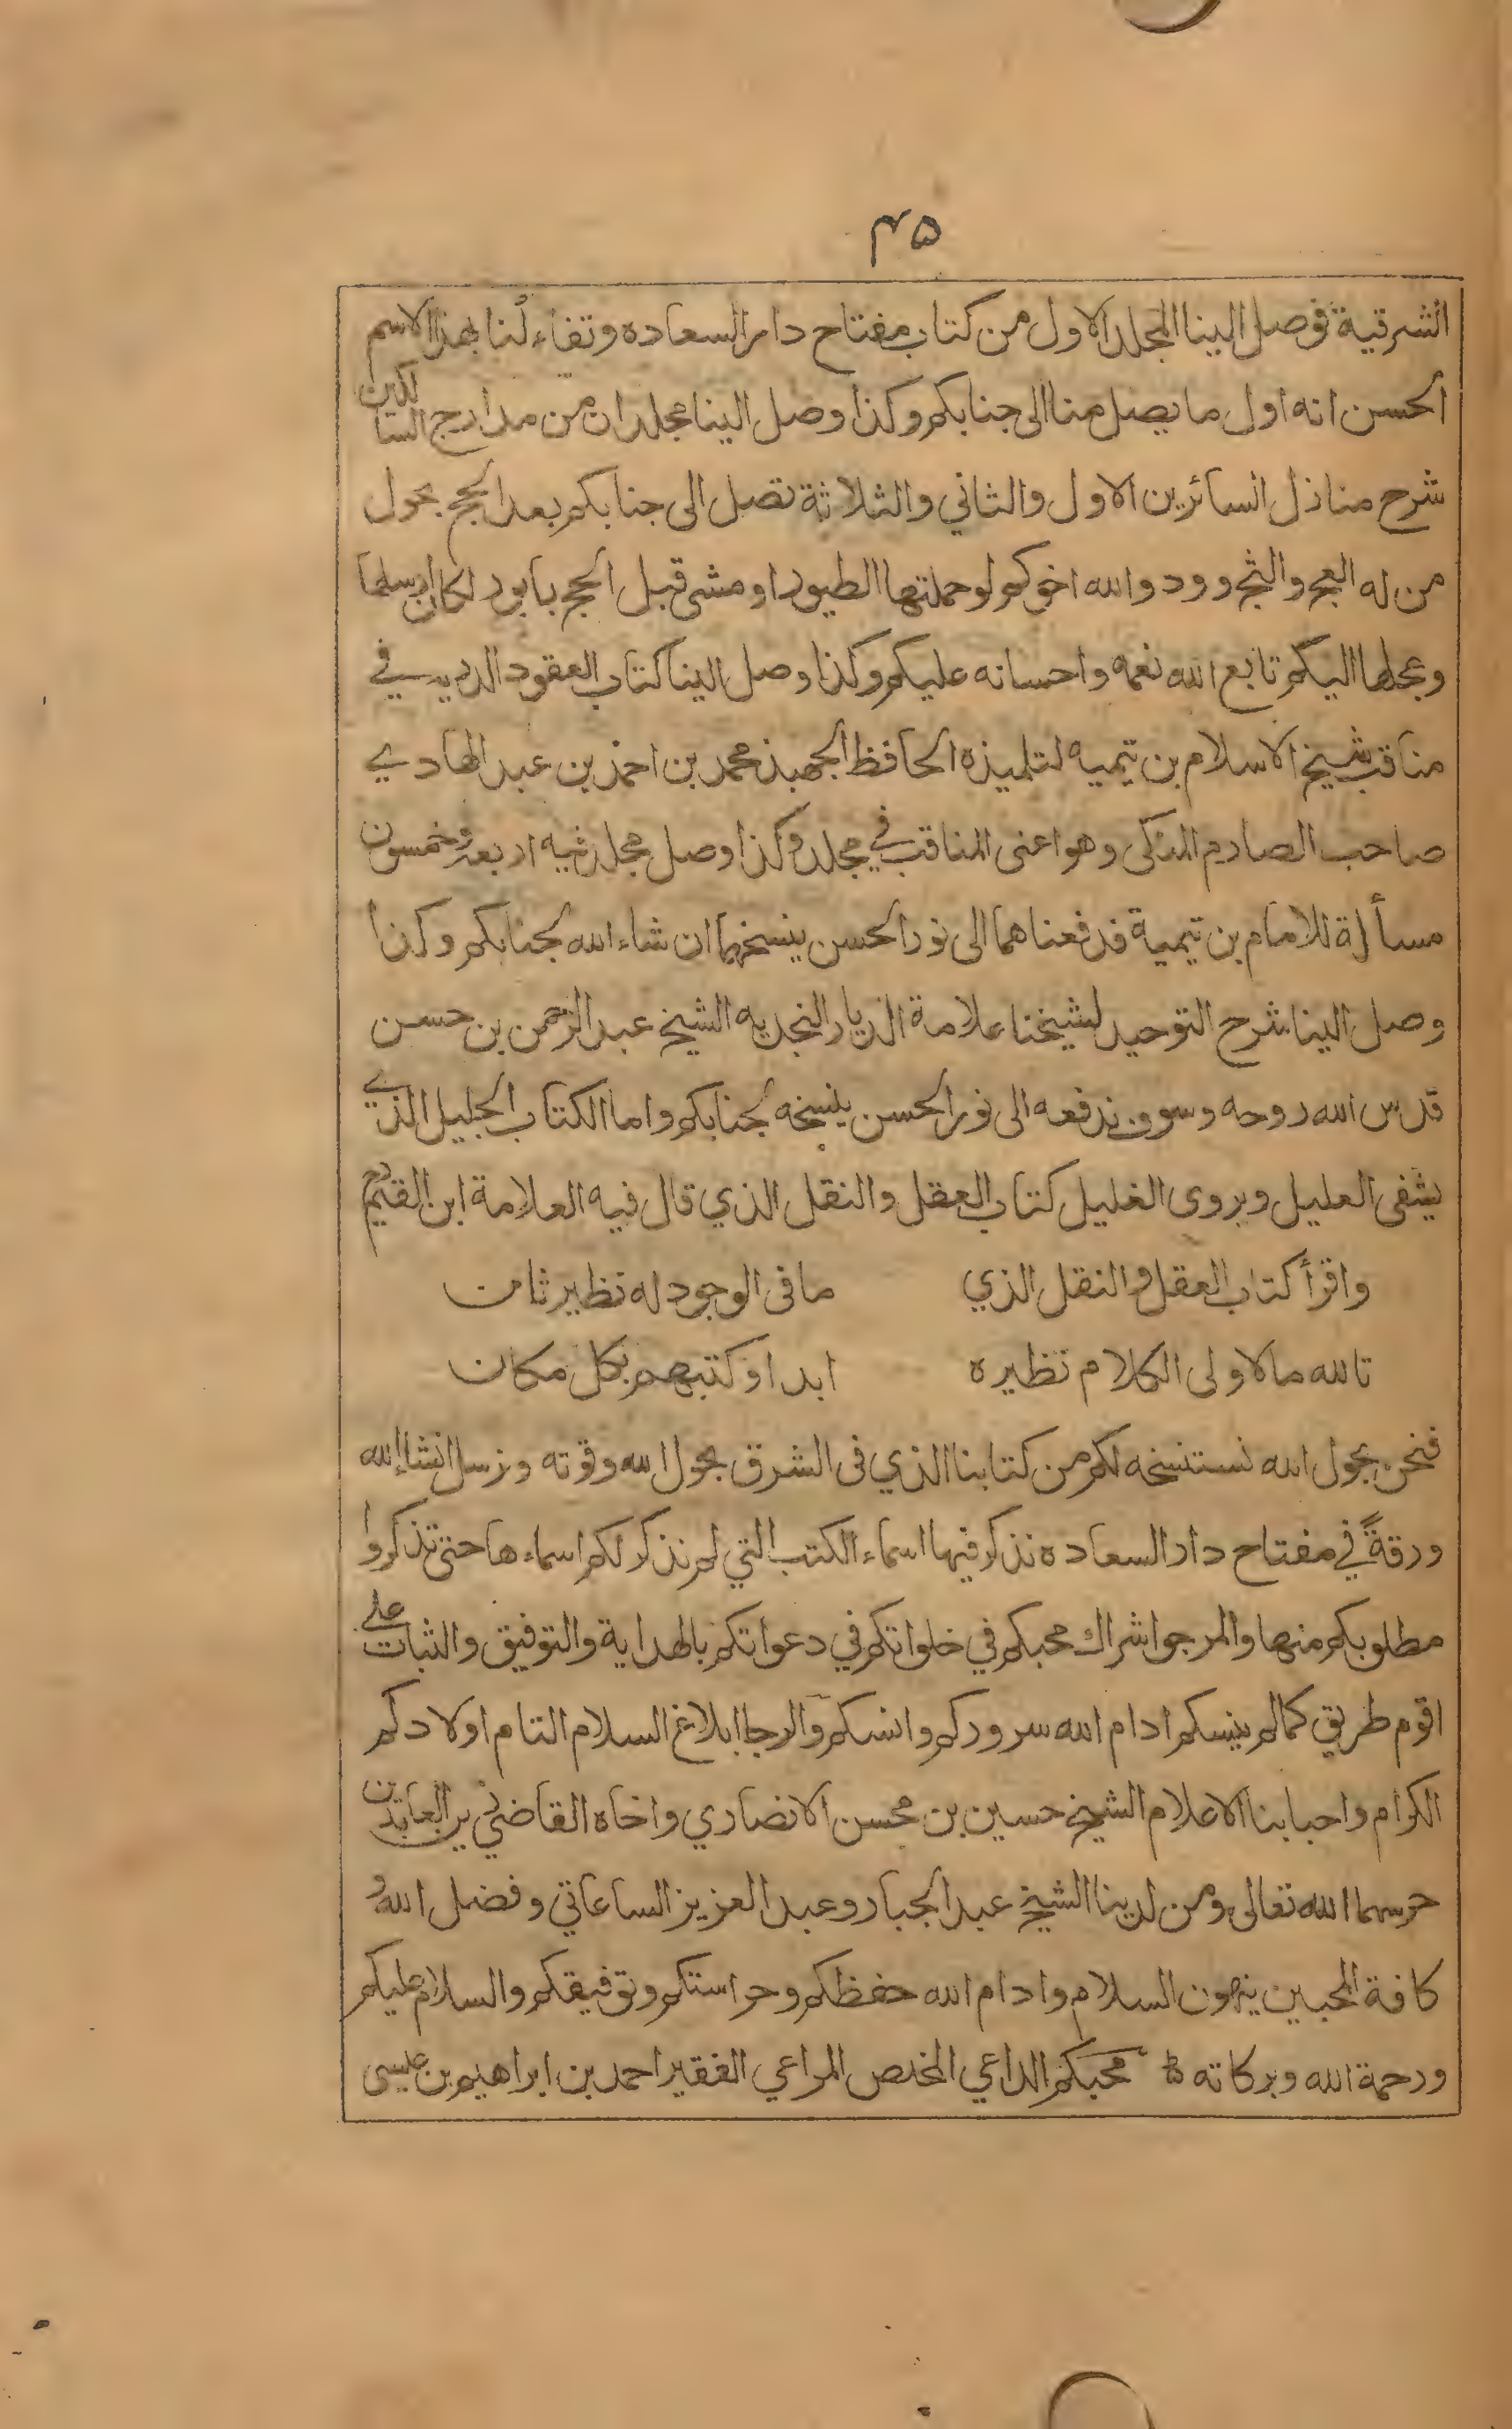 ٤٥
الشرقية فوصل الينا المجلد الاول من كتاب مفتاح دار السعاده وتفاءلنا بهذا الاسم
الحسن انه اول ما يصل منا الى جنابكم وكذا وصل الينا مجلدان من مدارج السالكين
شرح منازل السائرين الاول والثاني والثلاثة تصل الى جنابكم بعد الحج بحول
من له العج والثج وود والله اخوكم لو حملتها الطيور او مشى قبل الحج بابور لكان ارسلها
وعجلها اليكم تابع الله نعمه واحسانه عليكم وكذا وصل الينا كتاب العقود الدريه في
مناقب شيخ الاسلام بن تيميه لتلميذه الحافظ الجهبذ محمد بن احمد بن عبد الهادي
صاحب الصارم المنكى وهو اعنى المناقب في مجلد وكذا وصل مجلد فيه اربعة وخمسون
مسألة للامام بن تيمية فدفعناهما الى نور الحسن ينسخهما ان شاء الله لجنابكم وكذا
وصل الينا شرح التوحيد لشيخنا علامة الديار النجديه الشيخ عبد الرحمن بن حسن
قدس الله روحه وسوف ندفعه الى نور الحسن ينسخه لجنابكم واما الكتاب الجليل الذي
يشفى العليل ويروى الغليل كتاب العقل والنقل الذي قال فيه العلامة ابن القيم رح
واقرأ كتاب العقل والنقل الذي ما فى الوجود له نظير ثان
تالله ما لاولى الكلام نظيره ابدا وكتبهم بكل مكان
فنحن بحول الله نستنسخه لكم من كتابنا الذي فى الشرق بحول الله وقوته ونرسل انشاء الله
ورقةً في مفتاح دار السعاده نذكر فيها اسماء الكتب التي لم نذكر لكم اسماءها حتى تذكروا
مطلوبكم منها والمرجو اشراك محبكم في خلواتكم في دعواتكم بالهداية والتوفيق والثبات على
اقوم طريق كما لم ينسكم ادام الله سروركم وانسكم والرجا ابلاغ السلام التام اولادكم
الكرام واحبابنا الاعلام الشيخ حسين بن محسن الانصاري واخاه القاضي زين العابدين
حرسهما الله تعالى ومن لدينا الشيخ عبد الجبار وعبد العزيز الساعاتي وفضل الله و
كافة المحبين ينهون السلام وادام الله حفظكم وحراستكم وتوفيقكم والسلام عليكم
ورحمة الله وبركاته محبكم الداعي المخلص المراعي الفقير احمد بن ابراهيم بن عيسى